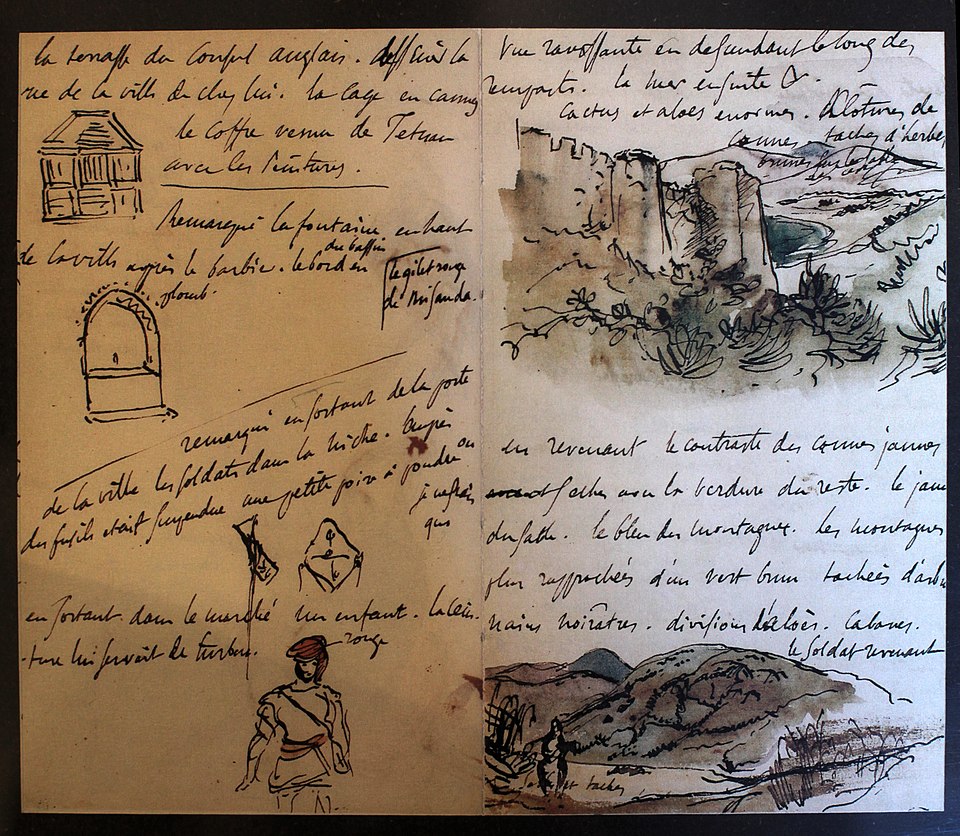 la terrasse du Consul anglais. dessiné la
vue de la ville de chez lui. la cage en cannes
le coffre venu de Tetuan
avec les peintures.
Remarqué la fontaine en haut
de la ville après le barbier. le bord en
du bassin
plomb.
le gilet rouge
de
remarqué en sortant de la porte
de la ville les soldats dans la niche. auprès
des fusils etait suspendue une petite poire à poudre ou
je ne sais
quoi
en sortant dans le marché un enfant. la cein
-ture lui servait de turban.
rouge
Vue ravissante en descendant le long des
remparts. la mer ensuite
Cactus et aloes enormes. clôtures de
cannes, taches d'herbes
brunes sur le sable
en revenant le contraste des cannes jaunes
seches avec la verdure du reste. le jaune
du sable. le bleu des montagnes. les montagnes
plus rapprochées d'un vert brun tachées d'arbres
nains noirâtres. divisions d'aloès. Cabanes.
le soldat revenant
et taches